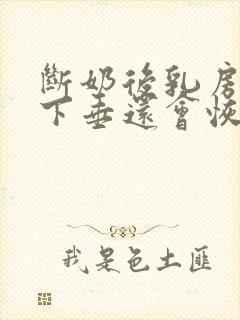 斷奶後乳房
下垂還會恢
我是色土匪